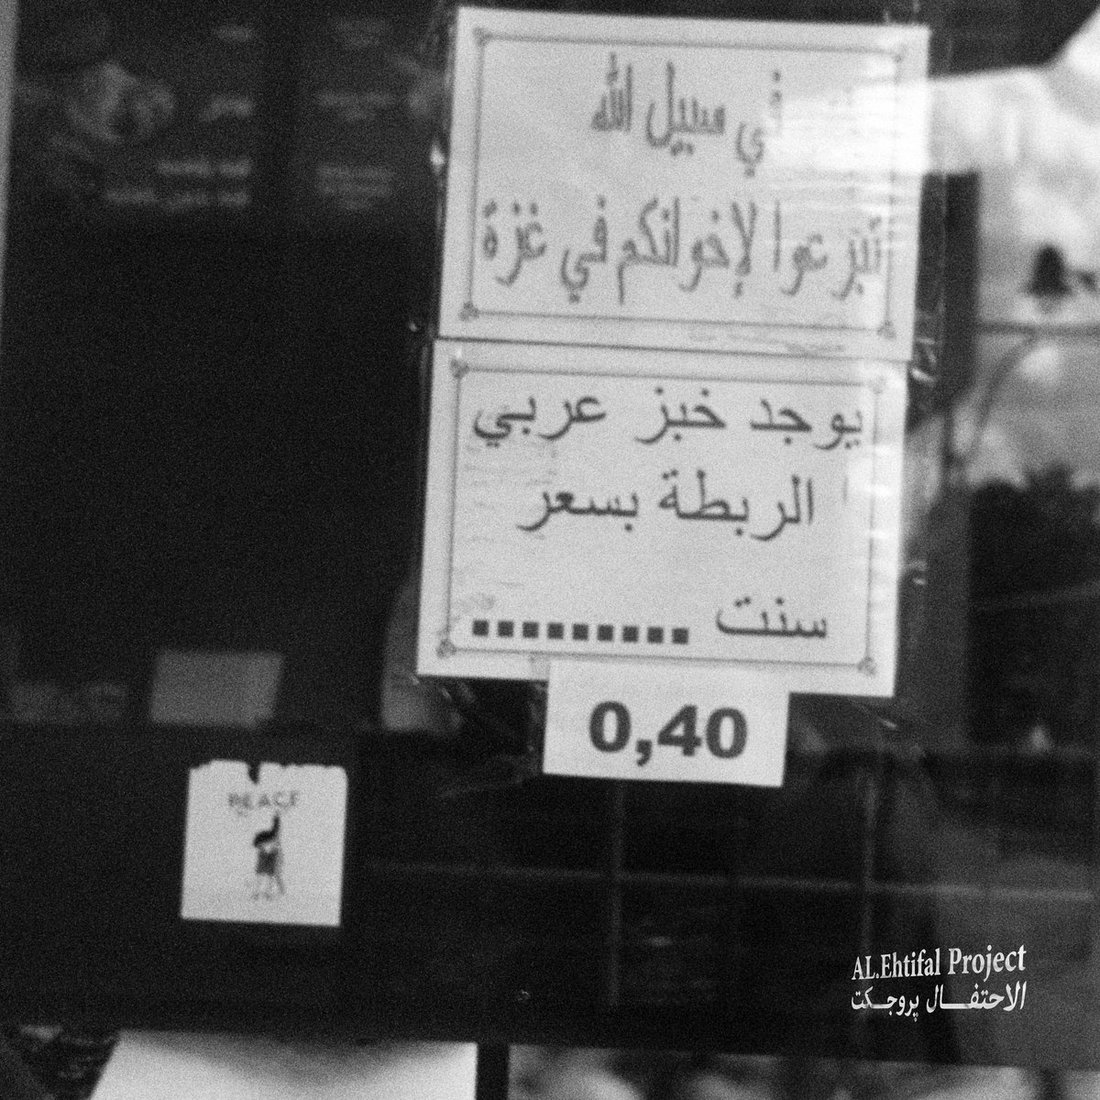 في سبيل الله
تبرعوا لإخوانكم في غزة
يوجد خبز عربي
الربطة بسعر
سنت .........
0,40
PEACE
AL.Ehtifal Project
الاحتفال پروجكت